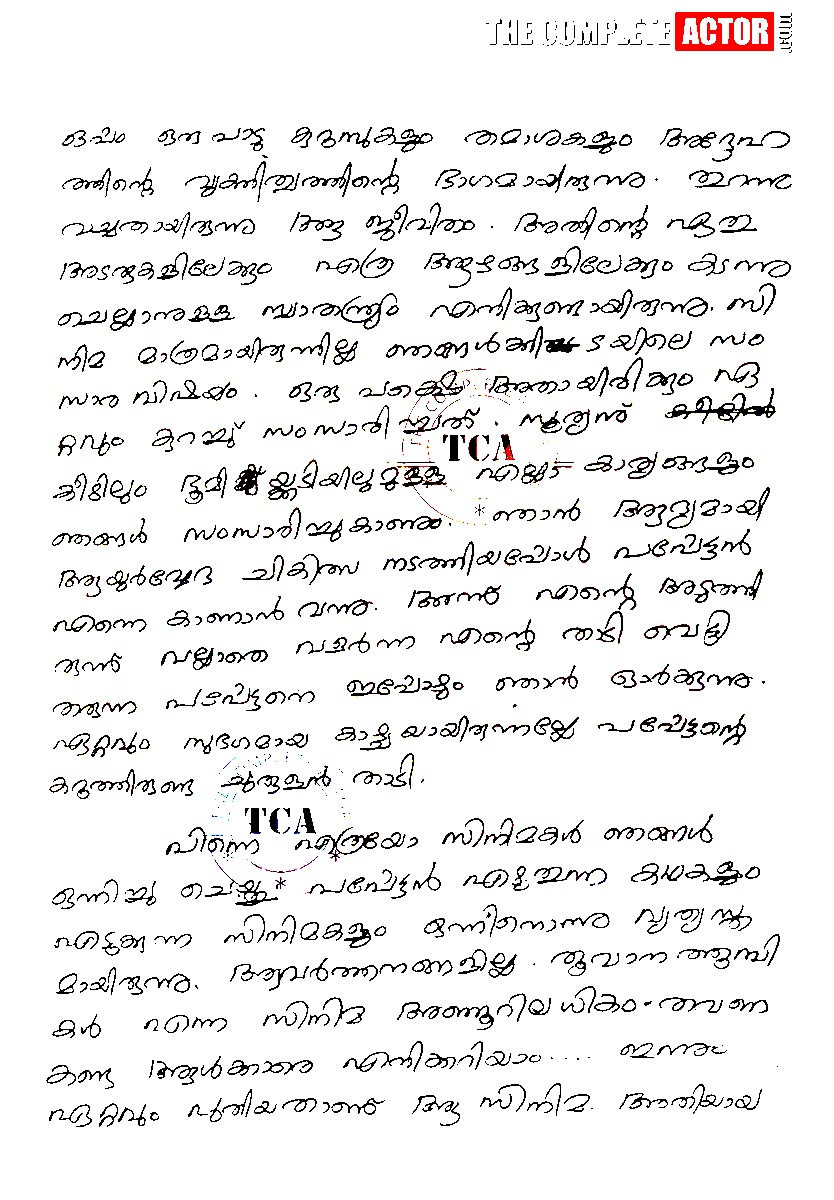 THE COMPLETE ACTOR
ഒപ്പം ഒരുപാടു കുറുമ്പുകളും തമാശകളും അദ്ദേഹ
ത്തിന്റെ വ്യക്തിത്വത്തിന്റെ ഭാഗമായിരുന്നു. തുറന്നു
വച്ചതായിരുന്നു ആ ജീവിതം. അതിന്റെ ഏതു
അടരുകളിലേക്കും എത്ര ആഴങ്ങളിലേക്കും കടന്നു
ചെല്ലാനുള്ള സ്വാതന്ത്ര്യം എനിക്കുണ്ടായിരുന്നു. സി
നിമ മാത്രമായിരുന്നില്ല ഞങ്ങൾക്കി ടയിലെ സം
സാര വിഷയം. ഒരു പക്ഷെ അതായിരിക്കും ഏ
റ്റവും കുറച്ച് സംസാരിച്ചത്. സൂര്യന്
കീഴിലും ഭൂമി യ്ക്കടിയിലുമുള്ള എല്ലാ കാര്യങ്ങളും
ഞങ്ങൾ സംസാരിച്ചുകാണും. *ഞാൻ ആദ്യമായി
ആയുർവേദ ചികിത്സ നടത്തിയപ്പോൾ പപ്പേട്ടൻ
എന്നെ കാണാൻ വന്നു. അന്ന് എന്റെ അടുത്തി
രുന്ന് വല്ലാതെ വളർന്ന എന്റെ താടി വെട്ടി
തരുന്ന പപ്പേട്ടനെ ഇപ്പോഴും ഞാൻ ഓർക്കുന്നു.
ഏറ്റവും സുഭഗമായ കാഴ്ചയായിരുന്നല്ലോ പപ്പേട്ടന്റെ
കറുത്തിരുണ്ട ചുരുളൻ താടി.
TCA
പിന്നെ എത്രയോ സിനിമകൾ ഞങ്ങൾ
TCA
ഒന്നിച്ചു ചെയ്തു* പപ്പേട്ടൻ എഴുതുന്ന കഥകളും
എടുക്കുന്ന സിനിമകളും ഒന്നിനൊന്നു വ്യത്യസ്ത
മായിരുന്നു. ആവർത്തനങ്ങളില്ല. തൂവാനത്തുമ്പി
കൾ എന്ന സിനിമ അഞ്ഞൂറിലധികം തവണ
കണ്ട ആൾക്കാരെ എനിക്കറിയാം.... ഇന്നും
ഏറ്റവും പുതിയതാണ് ആ സിനിമ. അതിയായ